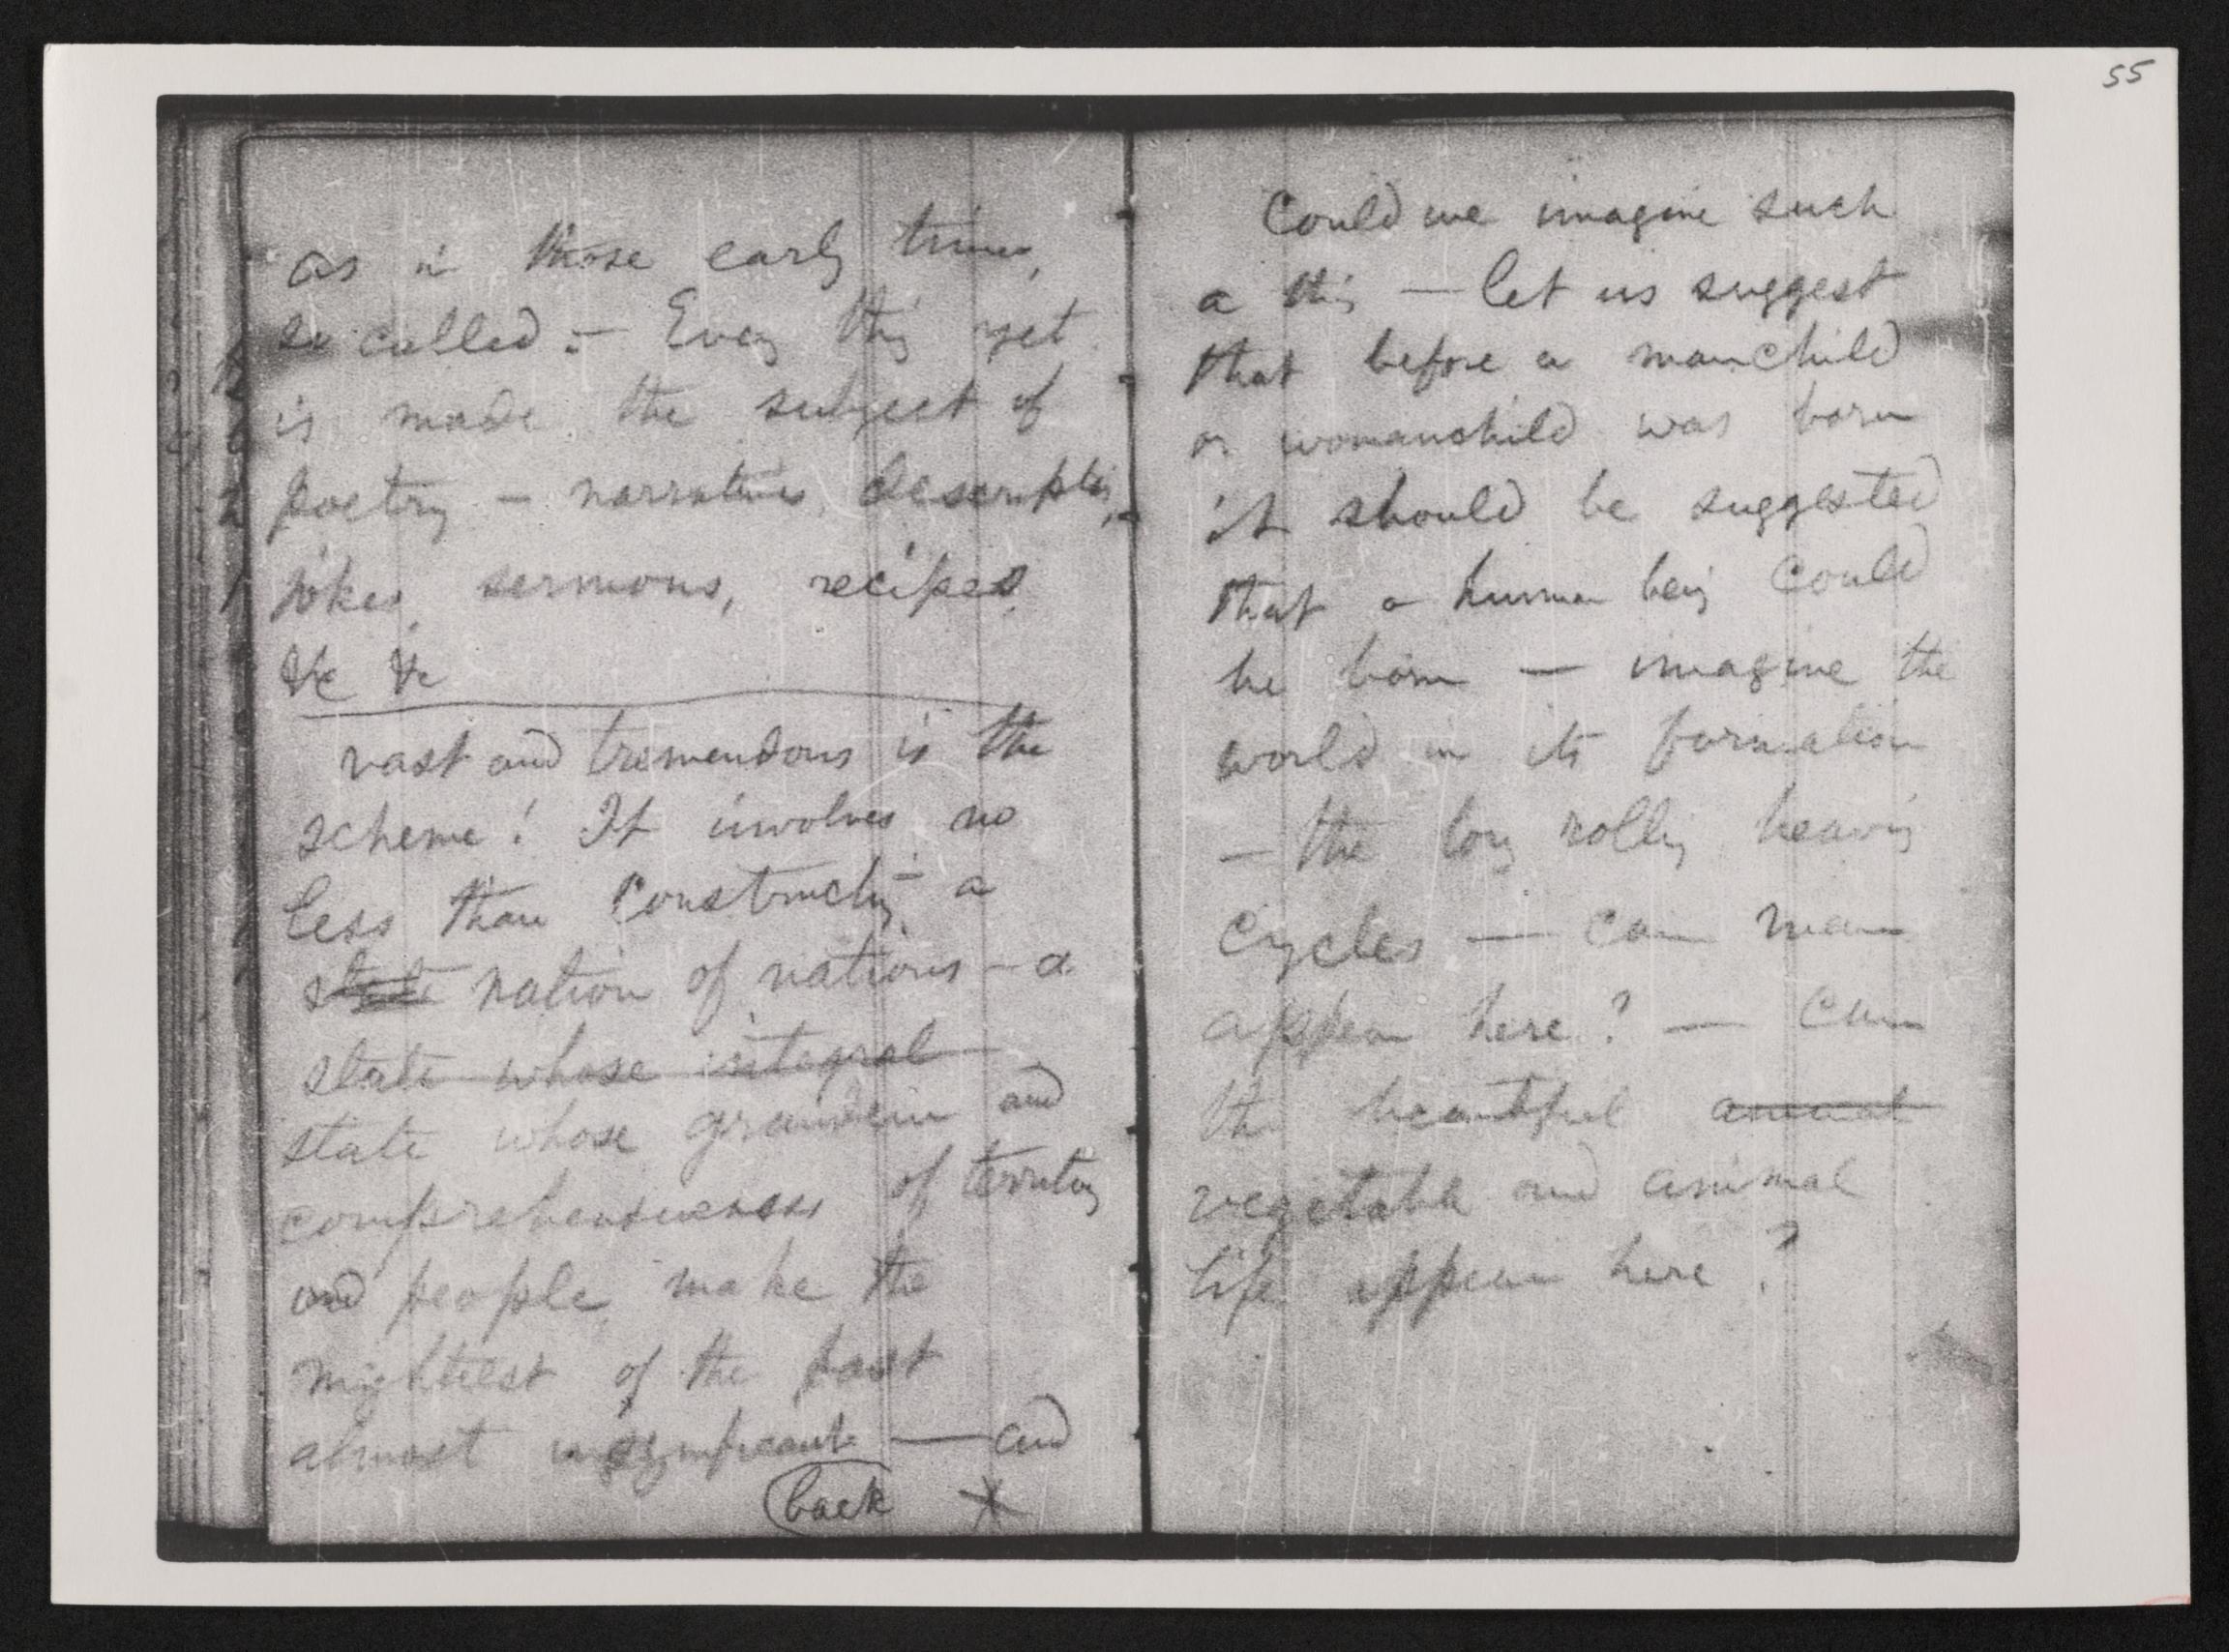 55
as in those early times,
so called. — Every thing yet
is made the subject of
poetry — narratives, descriptions,
jokes, sermons, recipes,
&c &c
vast and tremendous is the
scheme! It involves no
less than constructing a
state nation of nations — a
state whose integral
state whose grandeur and
comprehensiveness of territory
and people make the
mightiest of the past
almost insignificant — and
back *
Could we imagine such
a thing — let us suggest
that before a manchild
or womanchild was born
it should be suggested
that a human being could
be born — imagine the
world in its formation
— the long rolling heaving
cycles — can man
appear here? — can
the beautiful animal
vegetable and animal
life appear here?